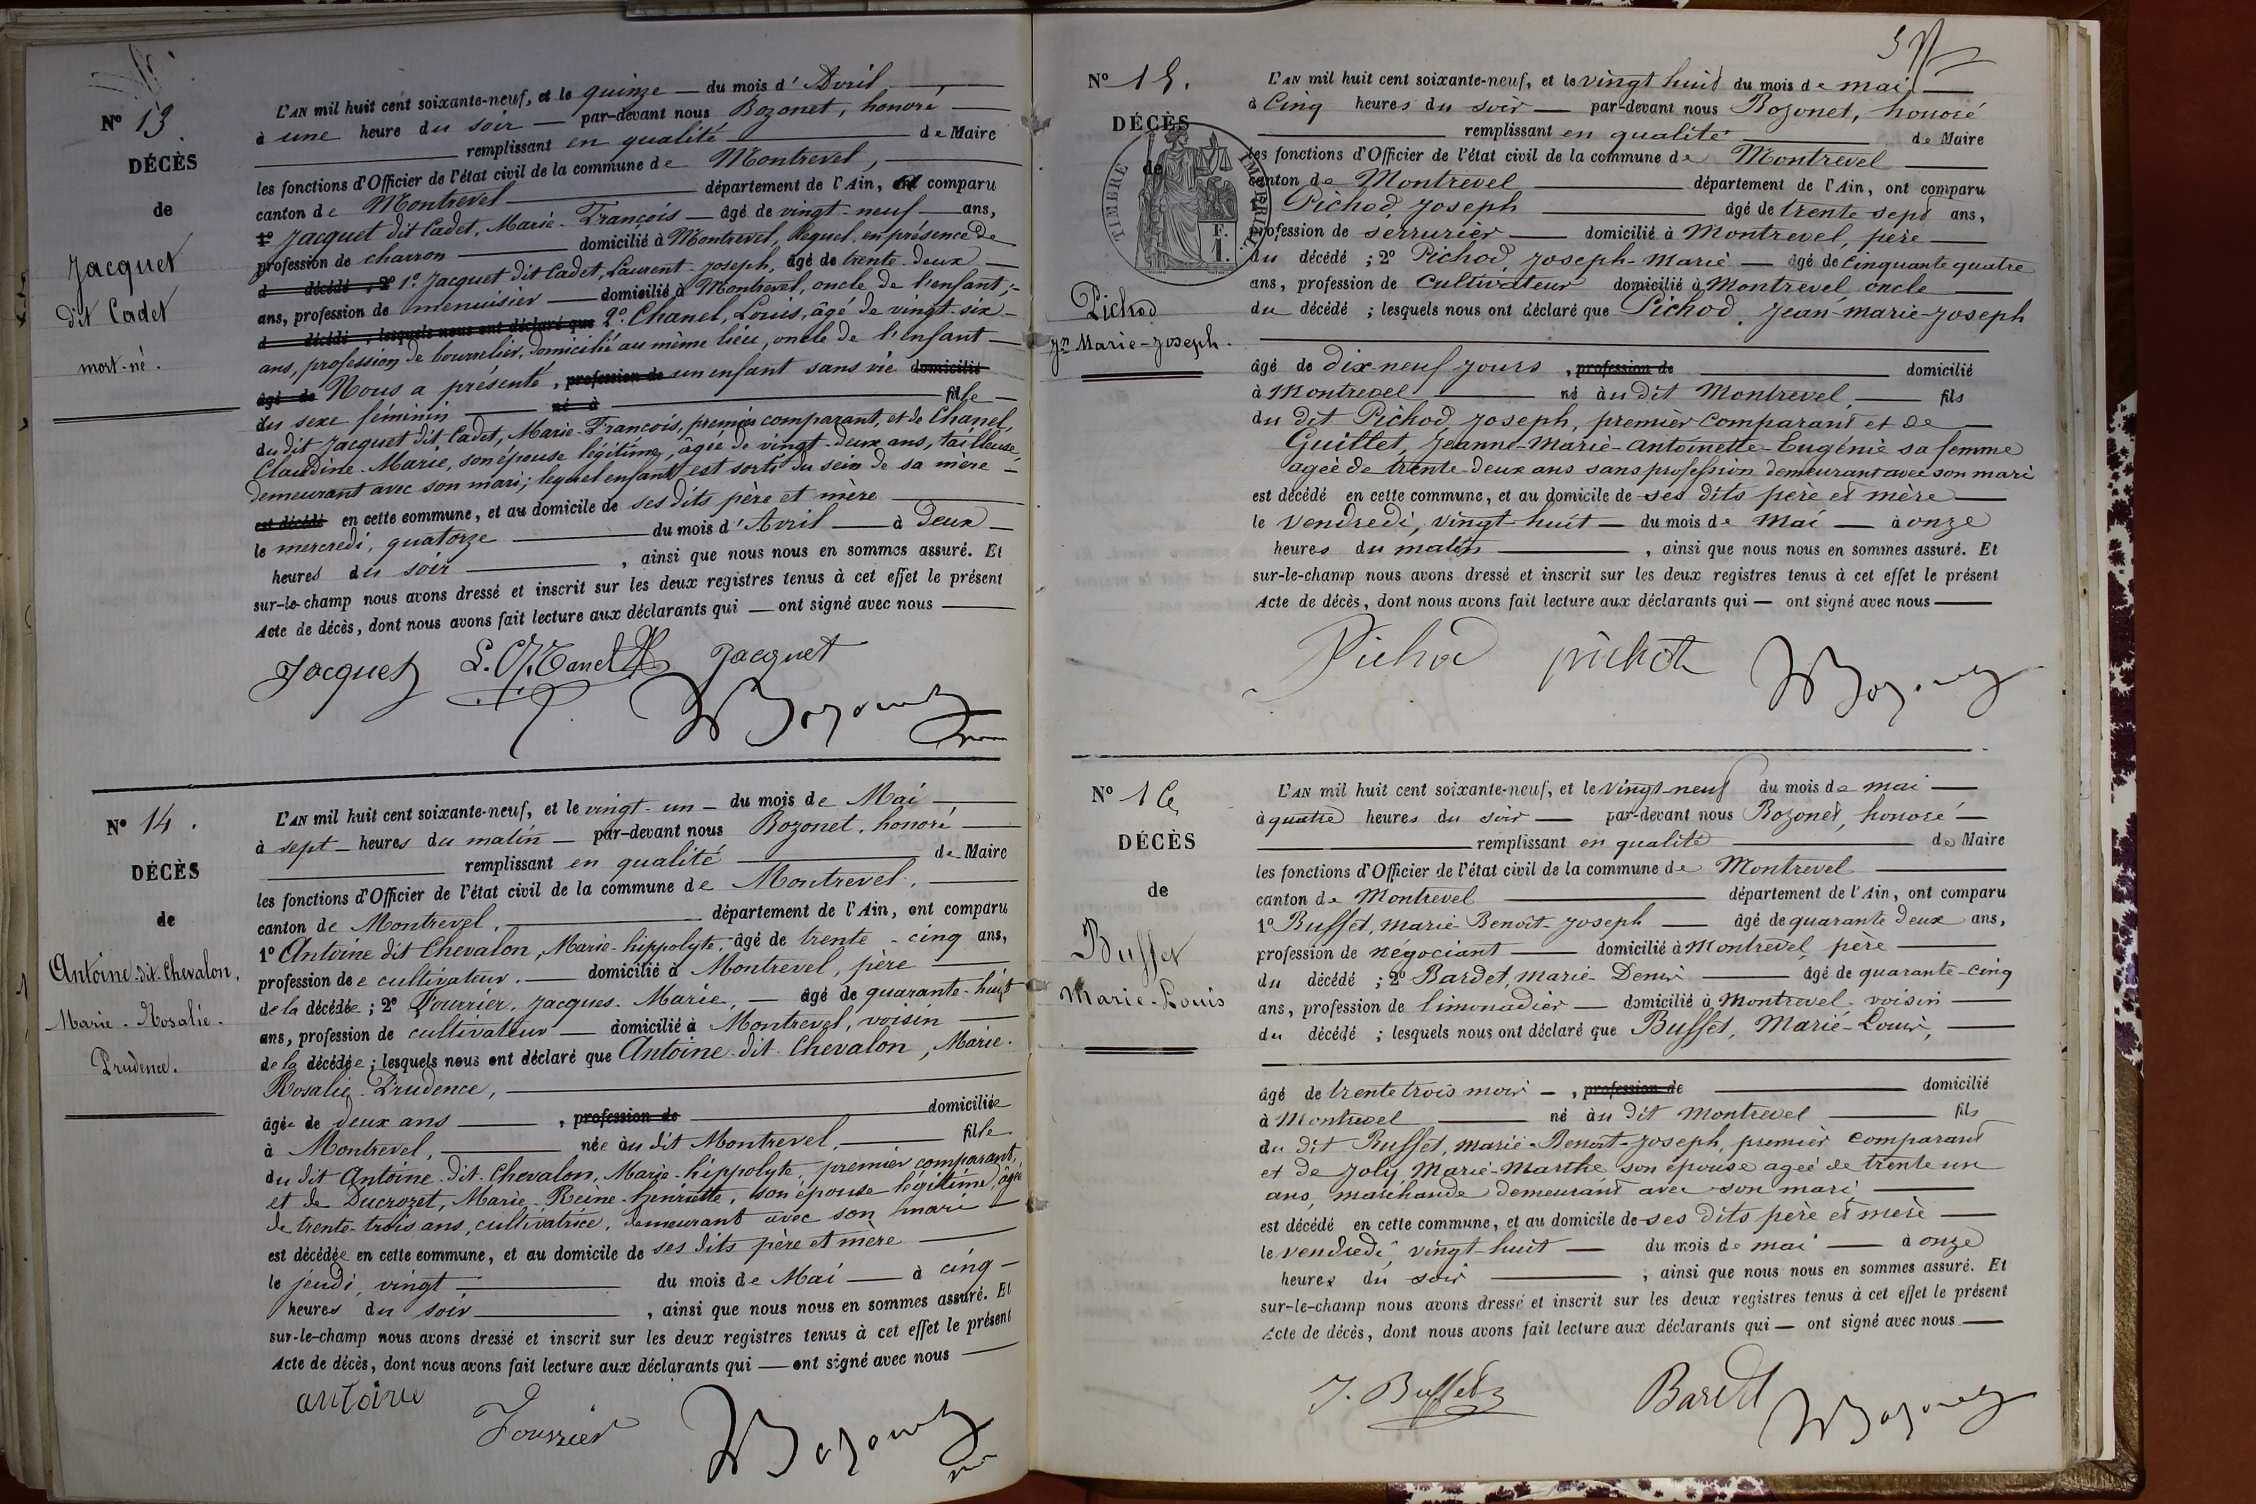 Nº 13.
DÉCÈS
de
Jacquet
dit Cadet
mort-né.
L'AN mil huit cent soixante-neuf, et le quinze du mois d'Avril,
à une heure du soir par-devant nous Bozonet, honoré
remplissant en qualité de Maire
les fonctions d'Officier de l'état civil de la commune de Montrevel,
canton de Montrevel département de l'Ain, est comparu
1º Jacquet dit Cadet, Marie-François âgé de vingt-neuf ans,
profession de charron domicilié à Montrevel, lequel en présence de
d décédé ; 2º 1º Jacquet dit Cadet, Laurent-Joseph, âgé de trente-deux
ans, profession de menuisier domicilié à Montrevel, oncle de l'enfant;
d décédé ; lesquels nous ont déclaré que 2º Chanel, Louis, âgé de vingt-six
ans, profession de bourrelier, domicilié au même lieu, oncle de l'enfant
âgé de Nous a présenté, profession de un enfant sans vie domicilié
du sexe féminin né à fille
du dit Jacquet dit Cadet, Marie-François, premier comparant, et de Chanel,
Claudine-Marie, son épouse légitime, âgée de vingt-deux ans, tailleuse,
demeurant avec son mari; lequel enfant est sorti du sein de sa mère
est décédé en cette commune, et au domicile de ses dits père et mère
le mercredi, quatorze du mois d'Avril à deux
heures du soir, ainsi que nous nous en sommes assuré. Et
sur-le-champ nous avons dressé et inscrit sur les deux registres tenus à cet effet le présent
Acte de décès, dont nous avons fait lecture aux déclarants qui ont signé avec nous
Jacquet L. Chanel Jacquet
Bozonet
Nº 14.
DÉCÈS
de
Antoine dit Chevalon,
Marie-Rosalie-
Prudence.
L'AN mil huit cent soixante-neuf, et le vingt-un du mois de Mai,
à sept heures du matin par-devant nous Bozonet, honoré
remplissant en qualité de Maire
les fonctions d'Officier de l'état civil de la commune de Montrevel,
canton de Montrevel, département de l'Ain, ont comparu
1º Antoine dit Chevalon, Marie-hippolyte, âgé de trente-cinq ans,
profession de cultivateur, domicilié à Montrevel, père
de la décédée ; 2º Fourrier, Jacques-Marie, âgé de quarante-huit
ans, profession de cultivateur domicilié à Montrevel, voisin
de la décédée ; lesquels nous ont déclaré que Antoine dit Chevalon, Marie-
Rosalie-Prudence,
âgée de deux ans, profession de domiciliée
à Montrevel, née au dit Montrevel, fille
du dit Antoine dit Chevalon, Marie-hippolyte, premier comparant,
et de Ducrozet, Marie-Reine-henriette, son épouse légitime, âgée
de trente-trois ans, cultivatrice, demeurant avec son mari
est décédée en cette commune, et au domicile de ses dits père et mère
le jeudi, vingt du mois de Mai à cinq
heures du soir, ainsi que nous nous en sommes assuré. Et
sur-le-champ nous avons dressé et inscrit sur les deux registres tenus à cet effet le présent
Acte de décès, dont nous avons fait lecture aux déclarants qui ont signé avec nous
antoine Fourrier Bozonet
Nº 15.
DÉCÈS
de
TIMBRE IMPÉRIAL
F.
1.
Pichod
Jn Marie-Joseph.
L'AN mil huit cent soixante-neuf, et le vingt huit du mois de mai
à cinq heures du soir par-devant nous Bozonet, honoré
remplissant en qualité de Maire
les fonctions d'Officier de l'état civil de la commune de Montrevel
canton de Montrevel département de l'Ain, ont comparu
Pichod, Joseph âgé de trente sept ans,
profession de serrurier domicilié à Montrevel, père
du décédé ; 2º Pichod, Joseph-Marie âgé de cinquante quatre
ans, profession de cultivateur domicilié à Montrevel oncle
du décédé ; lesquels nous ont déclaré que Pichod, Jean-marie-Joseph
âgé de dix neuf jours, profession de domicilié
à Montrevel né au dit Montrevel, fils
du dit Pichod, Joseph, premier comparant et de
Guillet, Jeanne-Marie-antoinette-Eugénie sa femme
agée de trente-deux ans sans profession demeurant avec son mari
est décédé en cette commune, et au domicile de ses dits père et mère
le vendredi, vingt huit du mois de Mai à onze
heures du matin, ainsi que nous nous en sommes assuré. Et
sur-le-champ nous avons dressé et inscrit sur les deux registres tenus à cet effet le présent
Acte de décès, dont nous avons fait lecture aux déclarants qui ont signé avec nous
Pichod pichot Bozonet
Nº 16
DÉCÈS
de
Buffet
Marie-Louis
L'AN mil huit cent soixante-neuf, et le vingt-neuf du mois de mai
à quatre heures du soir par-devant nous Bozonet, honoré
remplissant en qualité de Maire
les fonctions d'Officier de l'état civil de la commune de Montrevel
canton de Montrevel département de l'Ain, ont comparu
1º Buffet, marie Benoît-Joseph âgé de quarante deux ans,
profession de négociant domicilié à Montrevel, père
du décédé ; 2º Bardet, marie-Denis âgé de quarante-cinq
ans, profession de limonadier domicilié à Montrevel voisin
du décédé ; lesquels nous ont déclaré que Buffet, Marie-Louis,
âgé de trente trois mois, profession de domicilié
à Montrevel né au dit Montrevel fils
du dit Buffet, marie-Benoît-Joseph, premier comparant
et de Joly, Marie-Marthe son épouse agée de trente un
ans, marchande demeurant avec son mari
est décédé en cette commune, et au domicile de ses dits père et mère
le vendredi vingt-huit du mois de mai à onze
heures du soir, ainsi que nous nous en sommes assuré. Et
sur-le-champ nous avons dressé et inscrit sur les deux registres tenus à cet effet le présent
Acte de décès, dont nous avons fait lecture aux déclarants qui ont signé avec nous
J. Buffet Bardet Bozonet